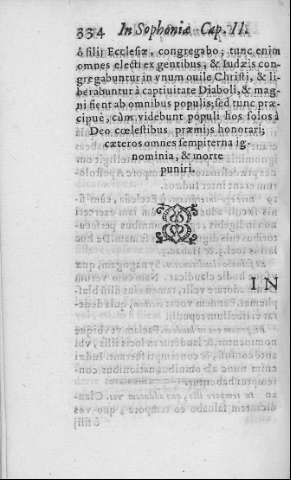 334 In Sophoniæ Cap. II.
ô filij Ecclesiæ, congregabo; tunc enim
omnes electi ex gentibus, & Iudæis con-
gregabuntur in vnum ouile Christi, & li-
berabuntur à captiuitate Diaboli, & mag-
ni fient ab omnibus populis; sed tunc præ-
cipuè, cùm videbunt populi hos solos à
Deo cœlestibus præmijs honorari;
cæteros omnes sempiterna ig-
nominia, & morte
puniri.
IN